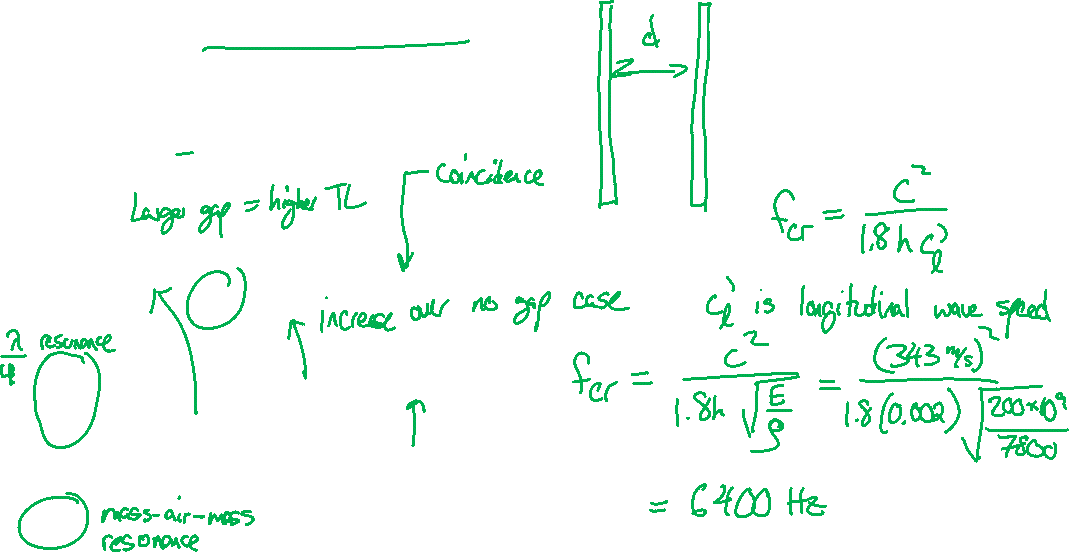 d
coincidence
Larger gap = higher TL
f_cr = c² / 1.8 h c_l'
increase over no gap case
c_l' is longitudinal wave speed
λ/4 resonance
f_cr = c² / 1.8h √(E/ρ) = (343 m/s)² / 1.8(0.002) √(200×10⁹/7800)
= 6400 Hz
mass-air-mass
resonance